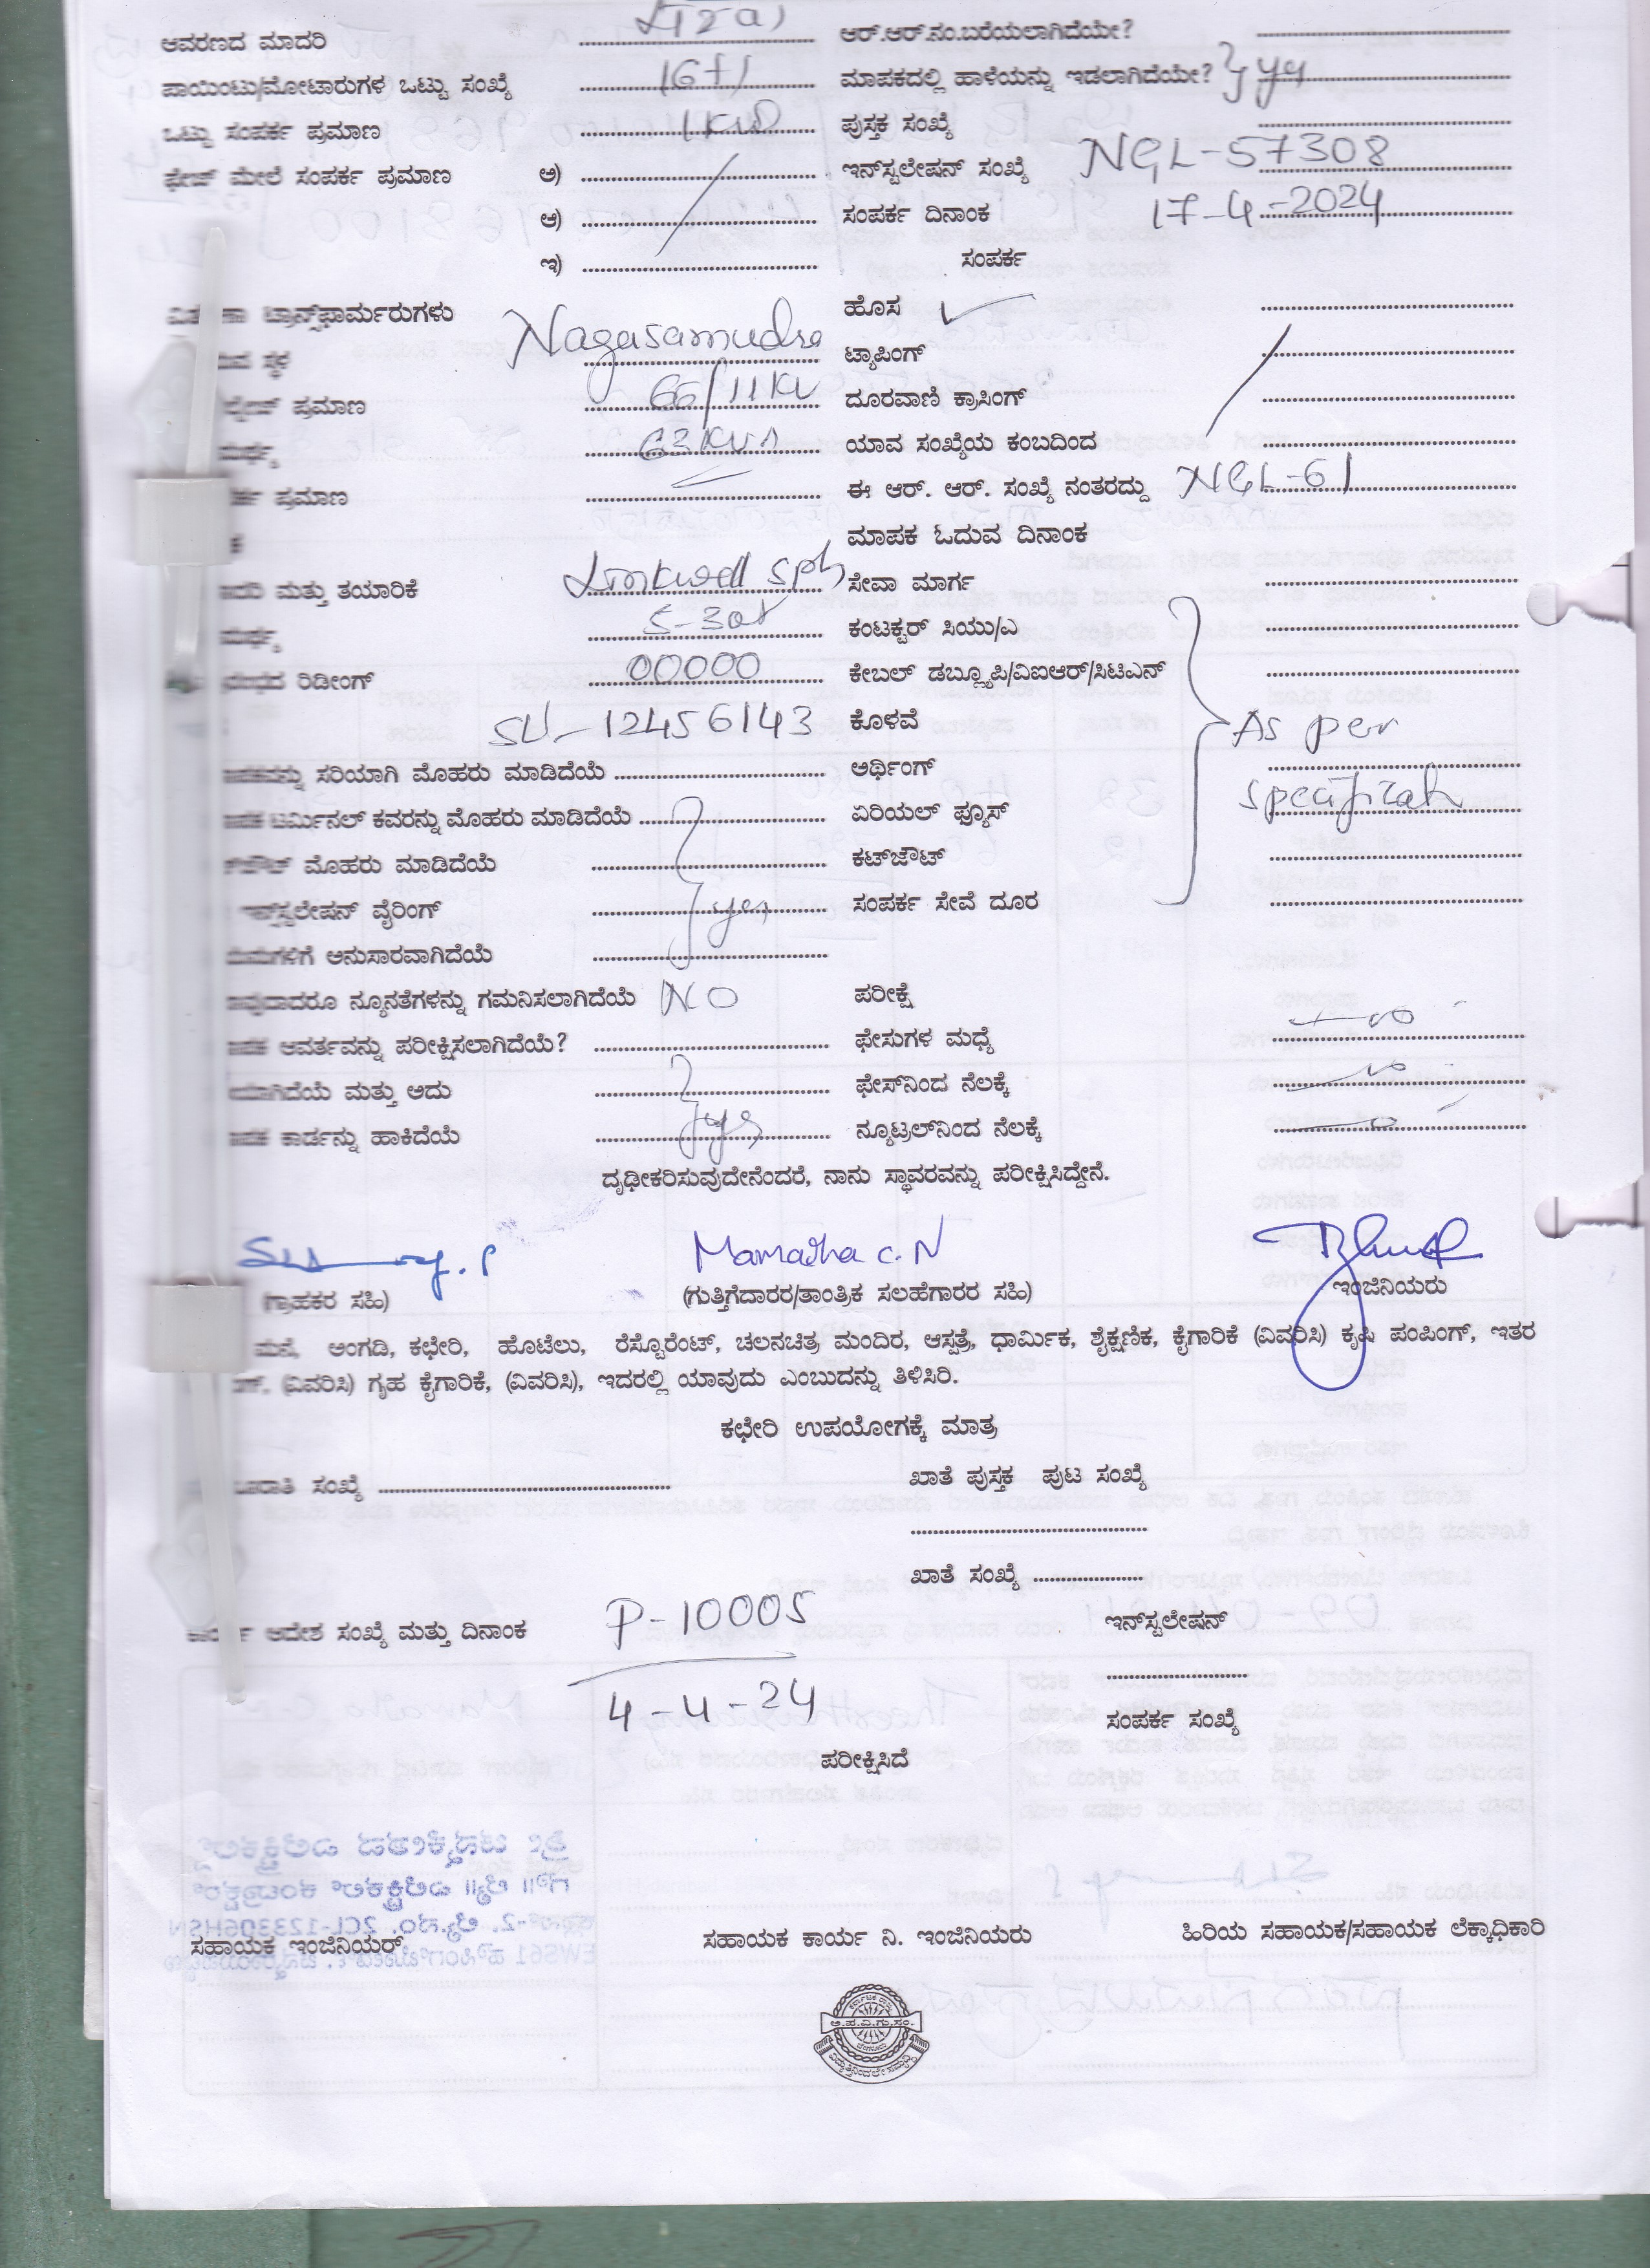 ಆವರಣದ ಮಾದರಿ ಆರ್.ಆರ್.ನಂ.ಬರೆಯಲಾಗಿದೆಯೇ?
ಪಾಯಿಂಟು/ಮೋಟಾರುಗಳ ಒಟ್ಟು ಸಂಖ್ಯೆ 16+1 ಮಾಪಕದಲ್ಲಿ ಹಾಳೆಯನ್ನು ಇಡಲಾಗಿದೆಯೇ? yes
ಒಟ್ಟು ಸಂಪರ್ಕ ಪ್ರಮಾಣ 1KW ಪುಸ್ತಕ ಸಂಖ್ಯೆ
ಫೇಜ್ ಮೇಲೆ ಸಂಪರ್ಕ ಪ್ರಮಾಣ ಅ) ಇನ್‌ಸ್ಟಲೇಷನ್ ಸಂಖ್ಯೆ NGL-57308
ಆ) ಸಂಪರ್ಕ ದಿನಾಂಕ 17-4-2024
ಇ) ಸಂಪರ್ಕ
ಟ್ರಾನ್ಸ್‌ಫಾರ್ಮರುಗಳು ಹೊಸ ✓
ಸ್ಥಳ Nagasamudra ಟ್ಯಾಪಿಂಗ್
ಪ್ರಮಾಣ 66/11KV ದೂರವಾಣಿ ಕ್ರಾಸಿಂಗ್
63KVA ಯಾವ ಸಂಖ್ಯೆಯ ಕಂಬದಿಂದ
ಪ್ರಮಾಣ ಈ ಆರ್. ಆರ್. ಸಂಖ್ಯೆ ನಂತರದ್ದು NGL-61
ಮಾಪಕ ಓದುವ ದಿನಾಂಕ
ಮತ್ತು ತಯಾರಿಕೆ Linkwell sph ಸೇವಾ ಮಾರ್ಗ
5-30A ಕಂಟಕ್ಟರ್ ಸಿಯು/ಎ
ರಿಡೀಂಗ್ 00000 ಕೇಬಲ್ ಡಬ್ಲ್ಯೂಪಿ/ವಿಐಆರ್/ಸಿಟಿಎನ್
SU-12456143 ಕೊಳವೆ As per
ಸರಿಯಾಗಿ ಮೊಹರು ಮಾಡಿದೆಯೆ ಅರ್ಥಿಂಗ್
ಟರ್ಮಿನಲ್ ಕವರನ್ನು ಮೊಹರು ಮಾಡಿದೆಯೆ ಏರಿಯಲ್ ಫ್ಯೂಸ್
ಮೊಹರು ಮಾಡಿದೆಯೆ ಕಟ್‌ಔಟ್
ವೈರಿಂಗ್ yes ಸಂಪರ್ಕ ಸೇವೆ ದೂರ
ಅನುಸಾರವಾಗಿದೆಯೆ
ನ್ಯೂನತೆಗಳನ್ನು ಗಮನಿಸಲಾಗಿದೆಯೆ NO ಪರೀಕ್ಷೆ
ಆವರ್ತವನ್ನು ಪರೀಕ್ಷಿಸಲಾಗಿದೆಯೆ? ಫೇಸುಗಳ ಮಧ್ಯೆ
ಮತ್ತು ಅದು ಫೇಸ್‌ನಿಂದ ನೆಲಕ್ಕೆ
ಕಾರ್ಡನ್ನು ಹಾಕಿದೆಯೆ yes ನ್ಯೂಟ್ರಲ್‌ನಿಂದ ನೆಲಕ್ಕೆ
ದೃಢೀಕರಿಸುವುದೇನೆಂದರೆ, ನಾನು ಸ್ಥಾವರವನ್ನು ಪರೀಕ್ಷಿಸಿದ್ದೇನೆ.
Mamatha C.N
(ಗ್ರಾಹಕರ ಸಹಿ) (ಗುತ್ತಿಗೆದಾರರ/ತಾಂತ್ರಿಕ ಸಲಹೆಗಾರರ ಸಹಿ) ಇಂಜಿನಿಯರು
ಮನೆ, ಅಂಗಡಿ, ಕಛೇರಿ, ಹೊಟೆಲು, ರೆಸ್ಟೊರೆಂಟ್, ಚಲನಚಿತ್ರ ಮಂದಿರ, ಆಸ್ಪತ್ರೆ, ಧಾರ್ಮಿಕ, ಶೈಕ್ಷಣಿಕ, ಕೈಗಾರಿಕೆ (ವಿವರಿಸಿ) ಕೃಷಿ ಪಂಪಿಂಗ್, ಇತರ
(ವಿವರಿಸಿ) ಗೃಹ ಕೈಗಾರಿಕೆ, (ವಿವರಿಸಿ), ಇದರಲ್ಲಿ ಯಾವುದು ಎಂಬುದನ್ನು ತಿಳಿಸಿರಿ.
ಕಛೇರಿ ಉಪಯೋಗಕ್ಕೆ ಮಾತ್ರ
ಸಂಖ್ಯೆ ಖಾತೆ ಪುಸ್ತಕ ಪುಟ ಸಂಖ್ಯೆ
ಖಾತೆ ಸಂಖ್ಯೆ
ಆದೇಶ ಸಂಖ್ಯೆ ಮತ್ತು ದಿನಾಂಕ P-10005 ಇನ್‌ಸ್ಟಲೇಷನ್
4-4-24 ಸಂಪರ್ಕ ಸಂಖ್ಯೆ
ಪರೀಕ್ಷಿಸಿದೆ
ಸಹಾಯಕ ಇಂಜಿನಿಯರ್ ಸಹಾಯಕ ಕಾರ್ಯ ನಿ. ಇಂಜಿನಿಯರು ಹಿರಿಯ ಸಹಾಯಕ/ಸಹಾಯಕ ಲೆಕ್ಕಾಧಿಕಾರಿ